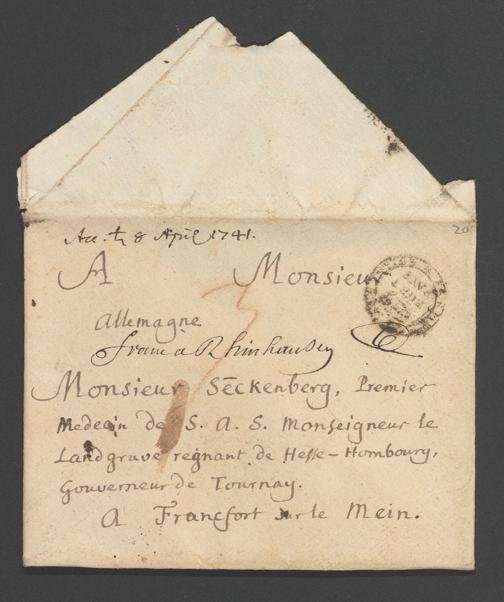 Acc. ♄ 8 April 1741.
20
A Monsieur
Allemagne
franc a Rhinhausen
Monsieur Sēckenberg, Premier
Medecin de S. A. S. Monseigneur le
Landgrave regnant de Hesse-Hombourg,
Gouverneur de Tournay.
A Francfort sur le Mein.